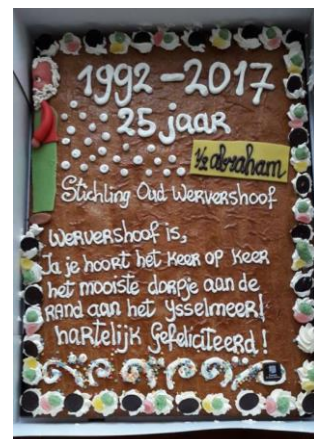 1992-2017
25 jaar
1/2 abraham
Stichting Oud Wervershoof
Wervershoof is,
Ja je hoort het keer op keer
het mooiste dorpje aan de
rand aan het Ysselmeer!
hartelijk Gefeliciteerd!